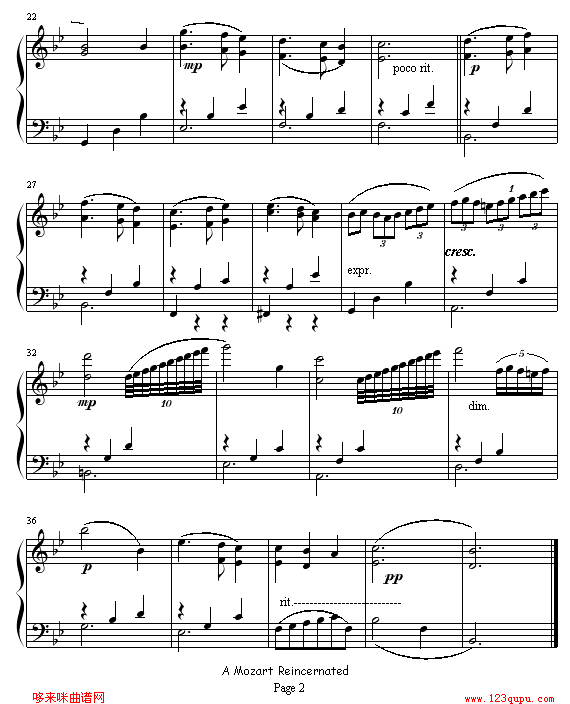 22
mp
poco rit.
p
27
3 3
3 1 3
expr.
cresc.
32
mp
10
10
5
dim.
36
p
pp
rit.
A Mozart Reincernated
Page 2
哆来咪曲谱网
www.123qupu.com